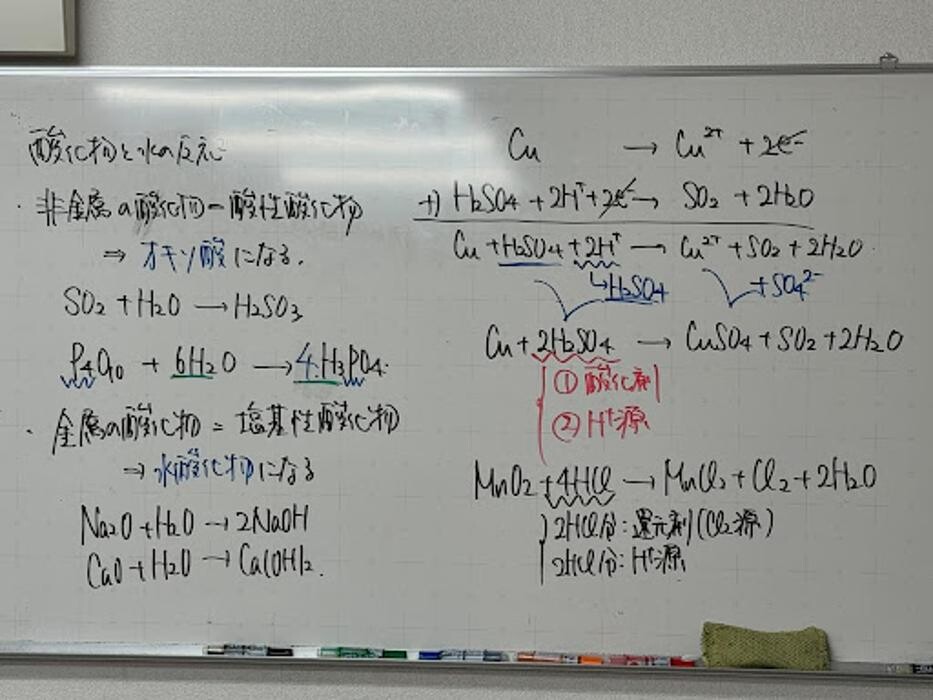 酸化物と水の反応
・非金属の酸化物=酸性酸化物
⇒ オキソ酸になる.
SO₂ + H₂O → H₂SO₃
P₄O₁₀ + 6H₂O → 4H₃PO₄.
・金属の酸化物 = 塩基性酸化物
⇒ 水酸化物になる
Na₂O + H₂O → 2NaOH
CaO + H₂O → Ca(OH)₂.
Cu → Cu²⁺ + 2e⁻
+) H₂SO₄ + 2H⁺ + 2e⁻ → SO₂ + 2H₂O
Cu + H₂SO₄ + 2H⁺ → Cu²⁺ + SO₂ + 2H₂O.
↳H₂SO₄ +SO₄²⁻
Cu + 2H₂SO₄ → CuSO₄ + SO₂ + 2H₂O
① 酸化剤
② H⁺源
MnO₂ + 4HCl → MnCl₂ + Cl₂ + 2H₂O
2HCl分: 還元剤 (Cl₂源)
2HCl分: H⁺源